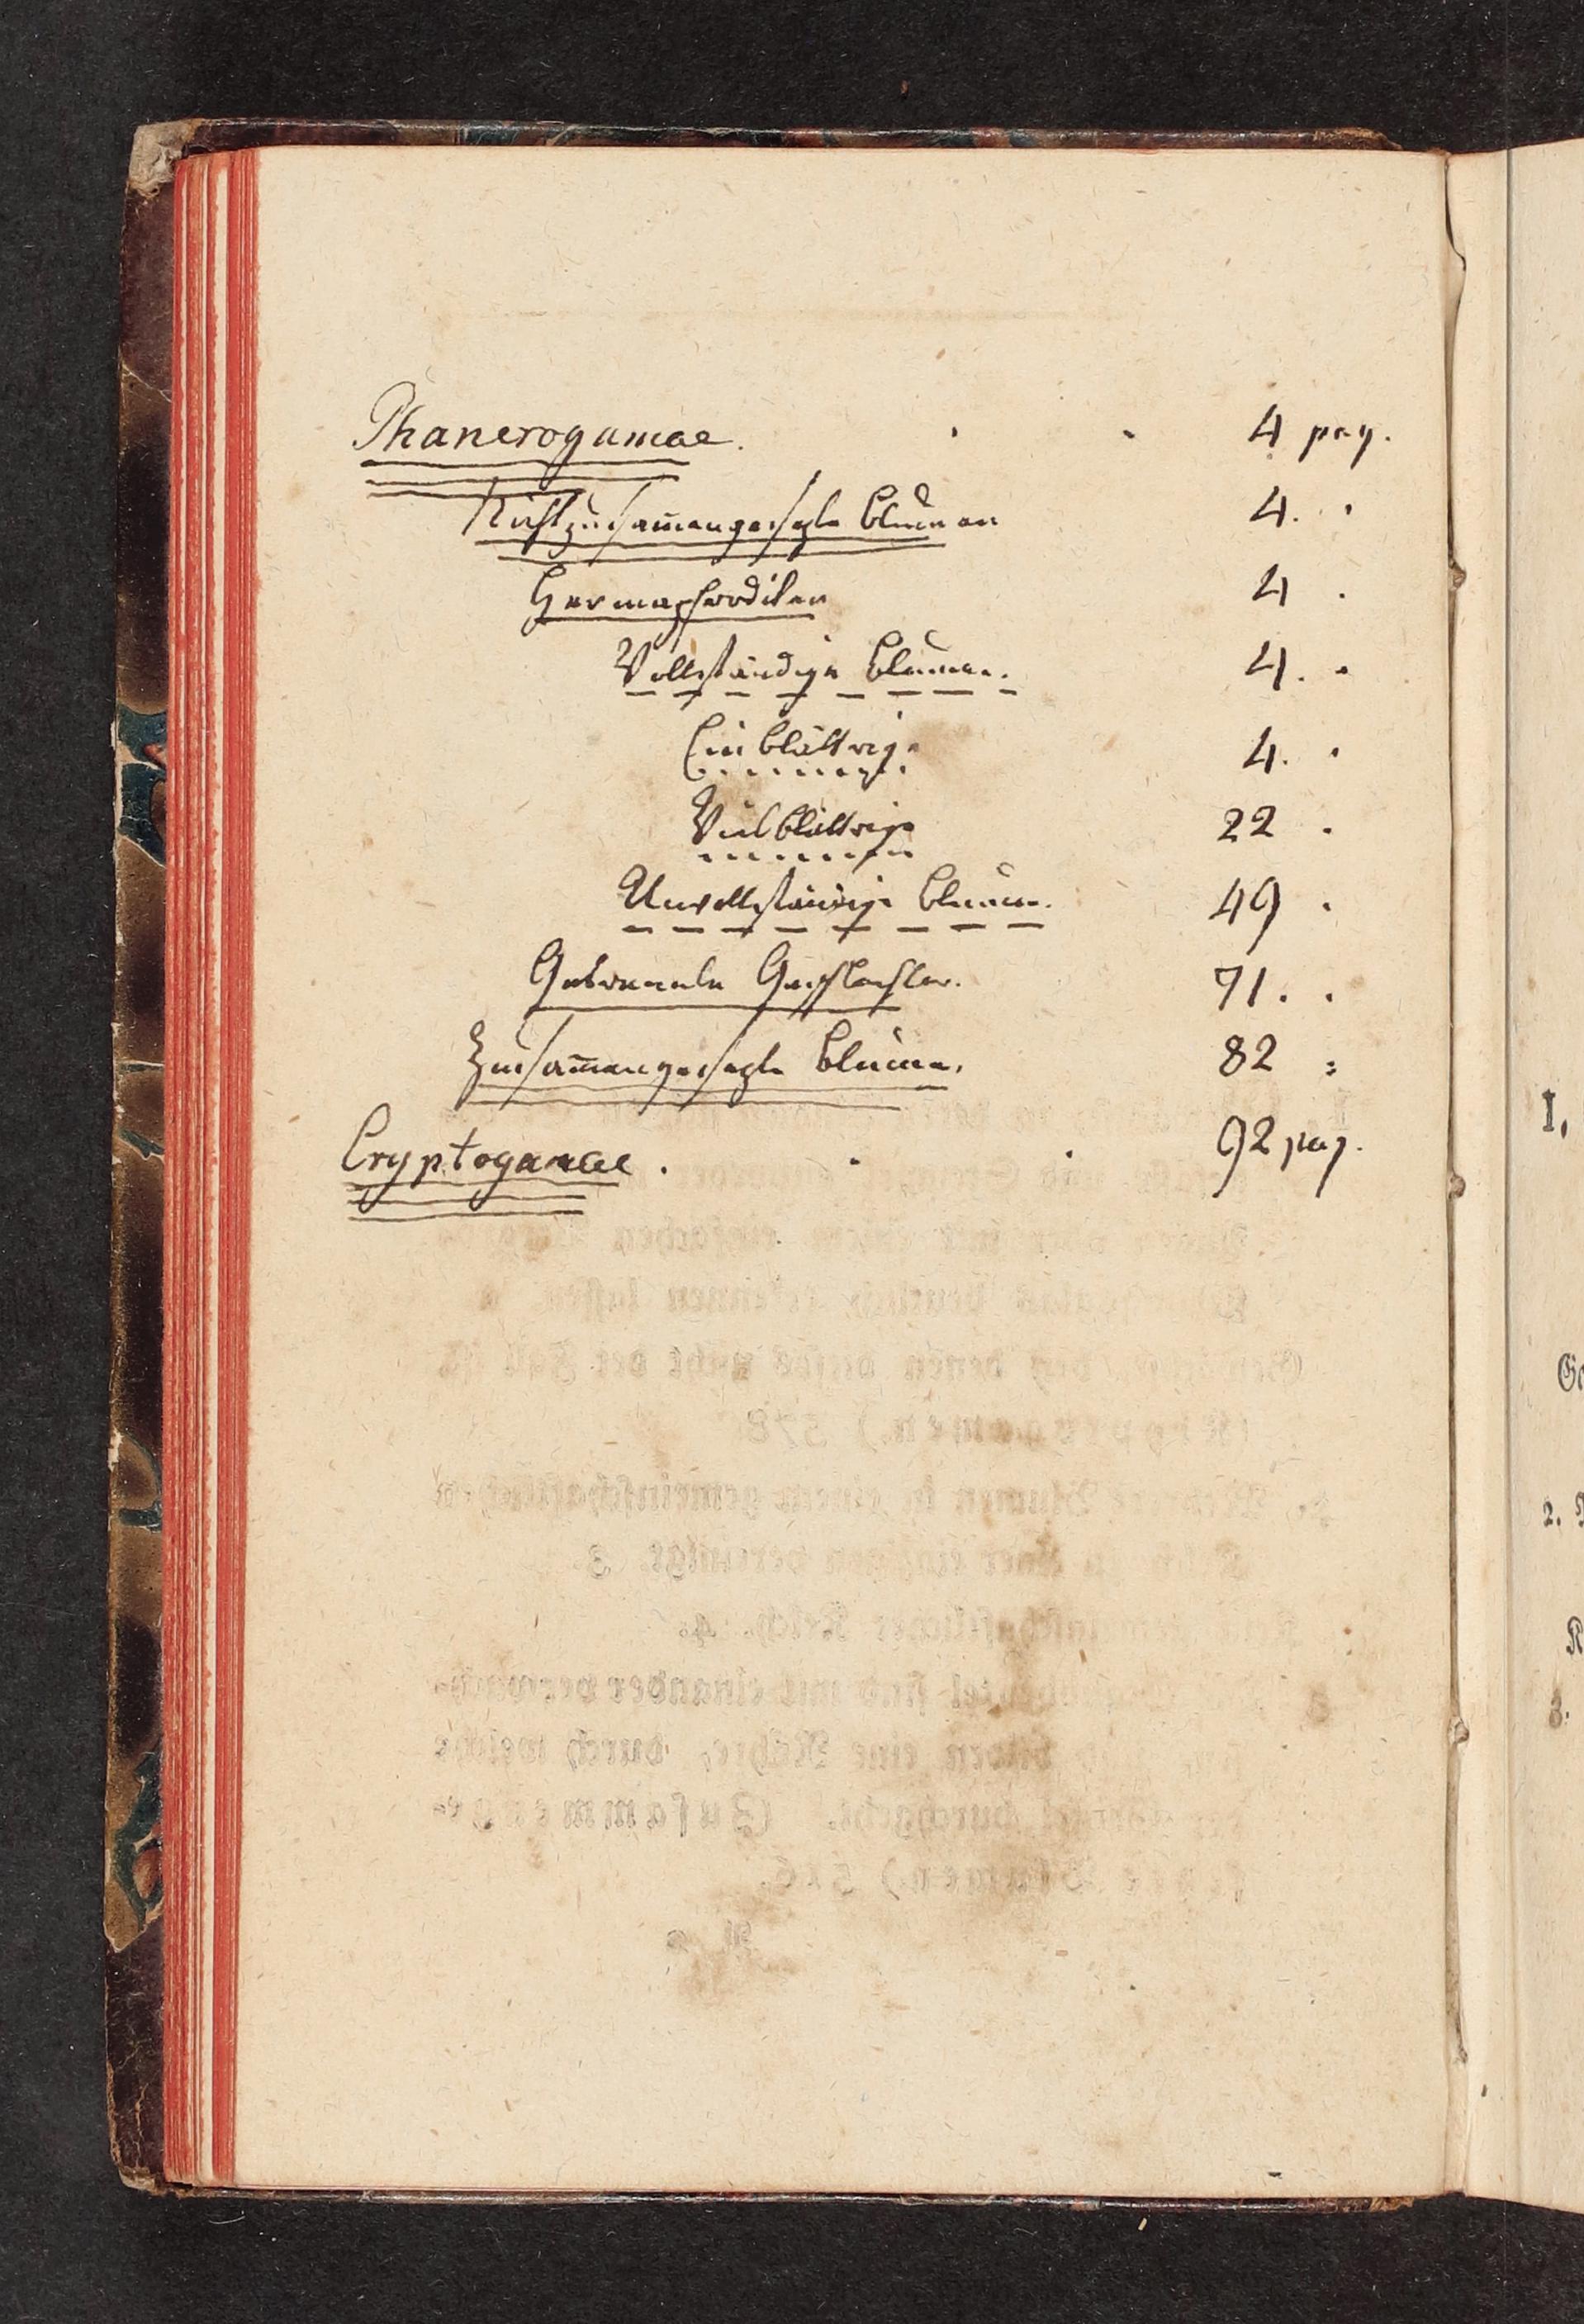 Phanerogamae. . . 4 pag.
Nichtzusam̅engesezte Blumen 4. .
Hermaphroditen 4 .
Vollständige Blumen. 4. .
Einblättrige 4. .
Vielblättrige 22 .
Unvollständige Blumen. 49 .
Getrennte Geschlechter. 71. .
Zusam̅engesezte Blumen. 82 :
Cryptogamae . . . 92 pag.
I,
2.
3.